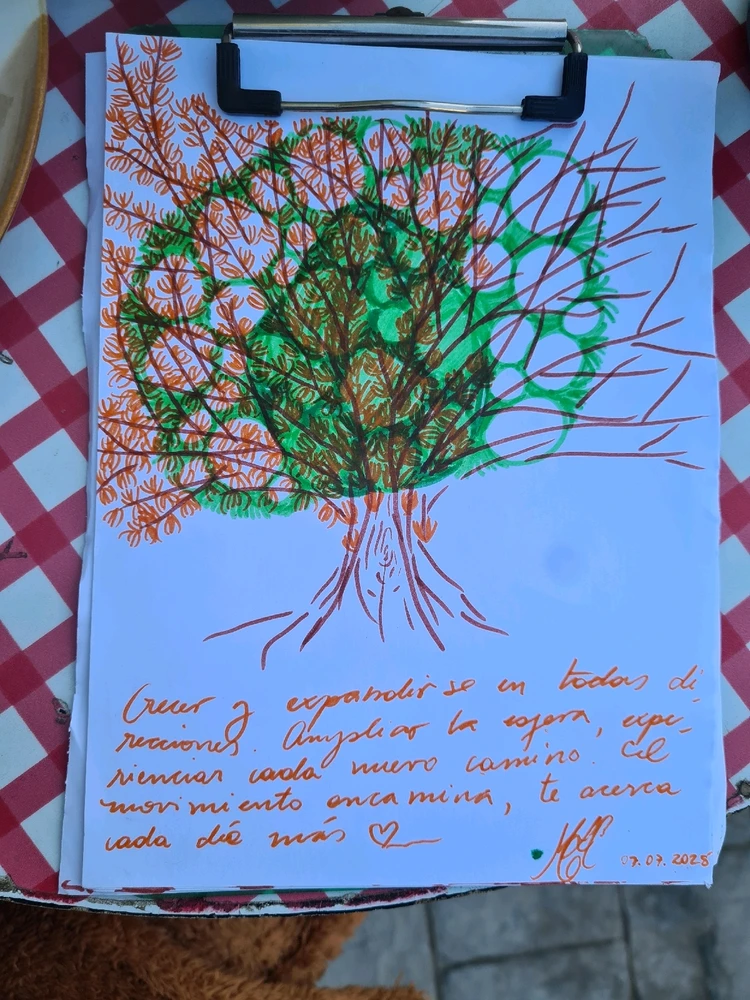 Crecer y expandirse en todas di
recciones. Ampliar la esfera, expe-
rienciar cada nuevo camino. El
movimiento encamina, te acerca
cada día más
07.07.2025